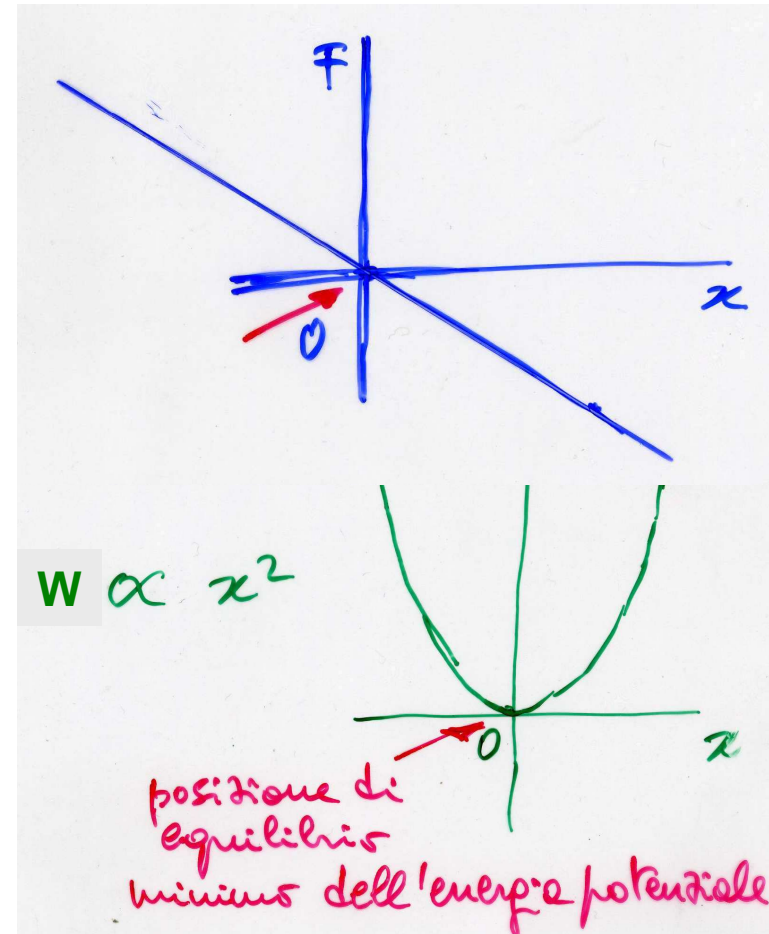 F
x
O
W ∝ x²
O
x
posizione di
equilibrio
minimo dell'energia potenziale